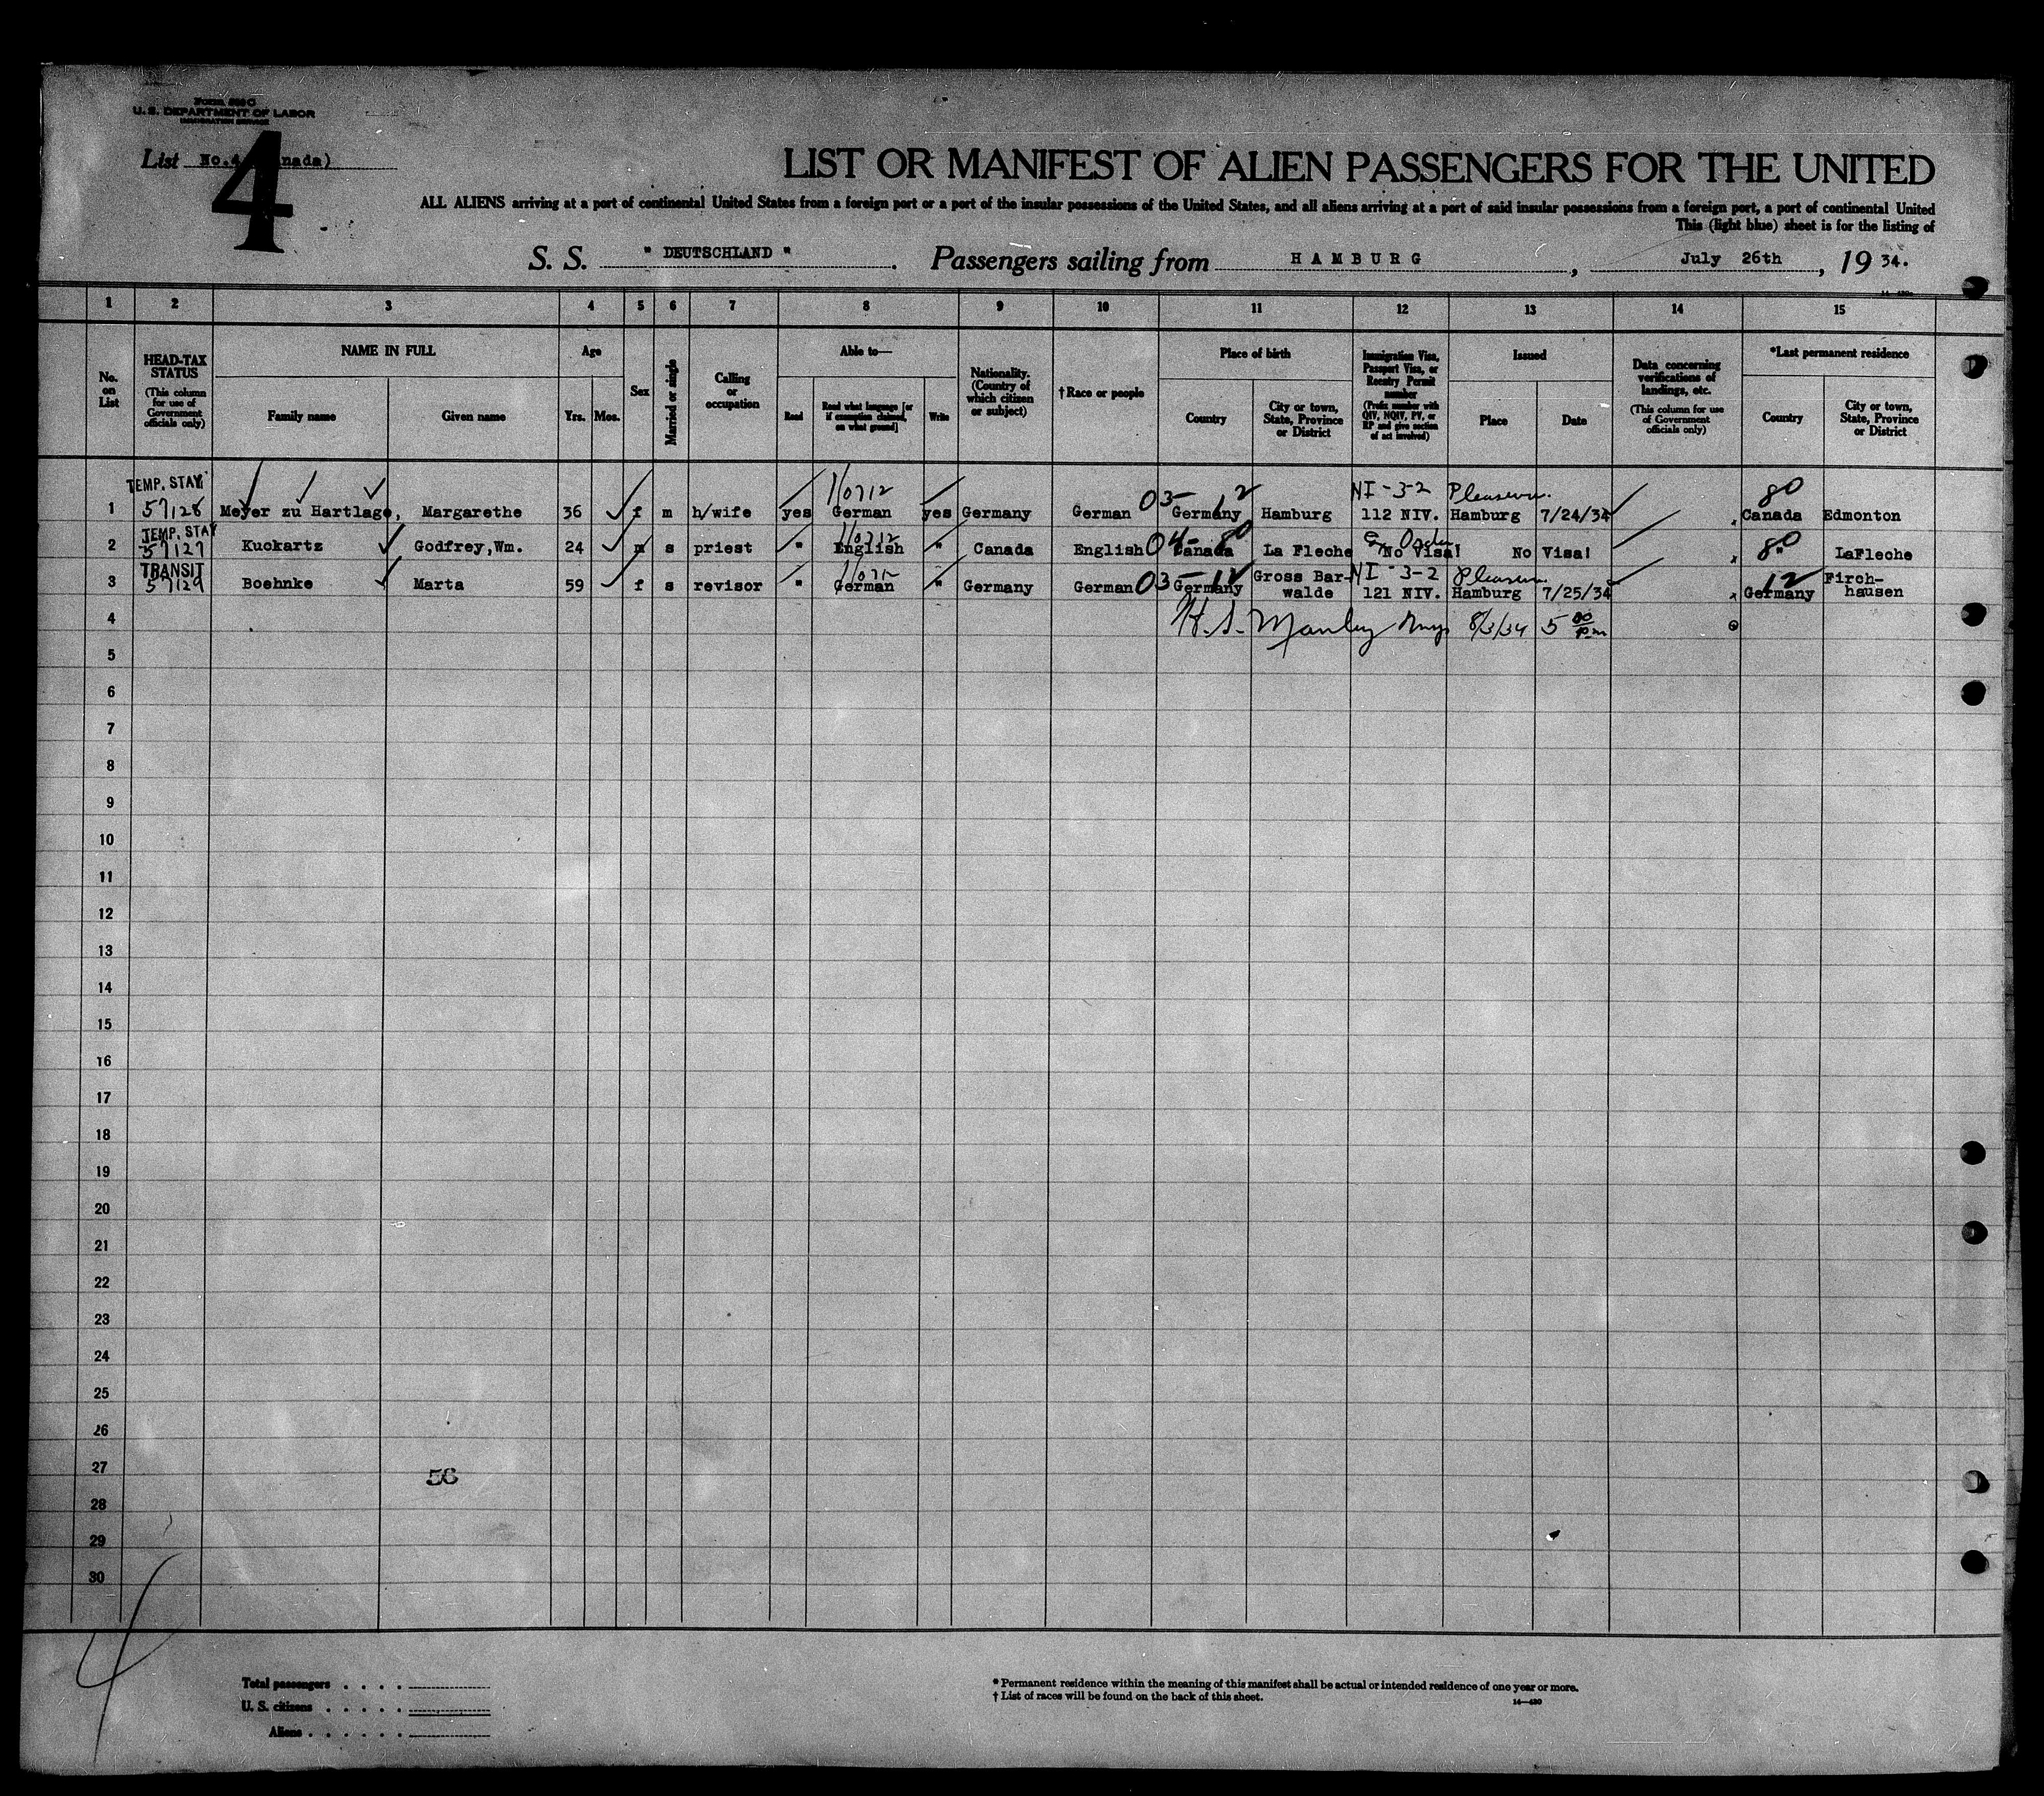 Form 500 C
U. S. DEPARTMENT OF LABOR
IMMIGRATION SERVICE
4
List No.4 nada)
LIST OR MANIFEST OF ALIEN PASSENGERS FOR THE UNITED
ALL ALIENS arriving at a port of continental United States from a foreign port or a port of the insular possessions of the United States, and all aliens arriving at a port of said insular possessions from a foreign port, a port of continental United
This (light blue) sheet is for the listing of
S. S. " DEUTSCHLAND " . Passengers sailing from HAMBURG , July 26th , 19 34.
1 2 3 4 5 6 7 8 9 10 11 12 13 14 15
No. on List
HEAD-TAX STATUS
(This column for use of Government officials only)
NAME IN FULL
Family name
Given name
Age
Yrs.
Mos.
Sex
Married or single
Calling or occupation
Able to—
Read
Read what language [or if exemption claimed, on what ground]
Write
Nationality. (Country of which citizen or subject)
† Race or people
Place of birth
Country
City or town, State, Province or District
Immigration Visa, Passport Visa, or Reentry Permit number
(Prefix number with QIV, NQIV, PV, or RP and give section of act involved)
Issued
Place
Date
Data concerning verifications of landings, etc.
(This column for use of Government officials only)
*Last permanent residence
Country
City or town, State, Province or District
TEMP. STAY 110712 03- 12 NI-3-2 Pleasure. 80
1 57128 Meyer zu Hartlage, Margarethe 36 f m h/wife yes German yes Germany German Germany Hamburg 112 NIV. Hamburg 7/24/34 Canada Edmonton
TEMP. STAY 110712 04- 80
2 57127 Kuckartz Godfrey,Wm. 24 m s priest " English " Canada English Canada La Fleche No Visa! No Visa! 80 " LaFleche
TRANSIT 11071 03-12 NI-3-2 Pleasure 12
3 57129 Boehnke Marta 59 f s revisor " German " Germany German Germany Gross Bar-walde 121 NIV. Hamburg 7/25/34 Germany Firch-hausen
4 H. S. Manley 8/3/34 5 00 pm
5
6
7
8
9
10
11
12
13
14
15
16
17
18
19
20
21
22
23
24
25
26
27
56
28
29
30
4
Total passengers . . . .
U. S. citizens . . . . .
Aliens . . . . . .
* Permanent residence within the meaning of this manifest shall be actual or intended residence of one year or more.
† List of races will be found on the back of this sheet.
14—430